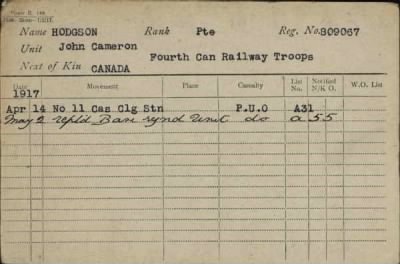 Name HODGSON Rank Pte Reg. No. 809067
John Cameron
Unit Fourth Can Railway Troops
Next of Kin CANADA
Date Movement Place Casualty List No. Notified N/K O. W.O. List
1917
Apr 14 No 11 Cas Clg Stn P.U.O A31
May 2 repld Base rynd Unit do a 55